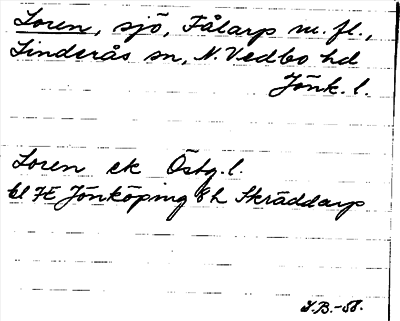 Loren, sjö, Fålarp m. fl.,
Linderås sn, N. Vedbo hd
Jönk. l.
Loren ek Östg. l.
bl 7E Jönköping 8h Skräddarp
S.B.-58.